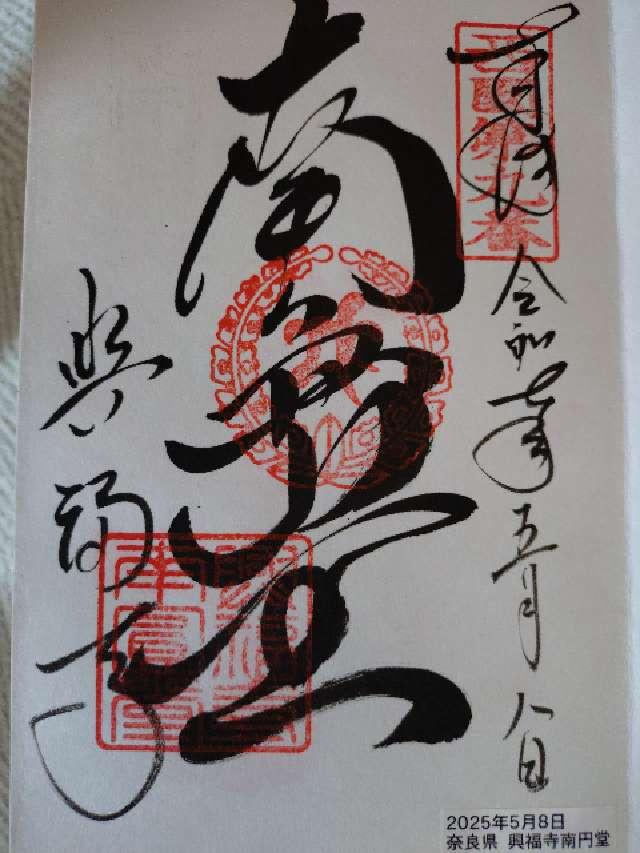 奉拝
西国第九番
令和七年五月八日
南圓堂
興福寺
興福寺
南圓堂
2025年5月8日
奈良県 興福寺南円堂